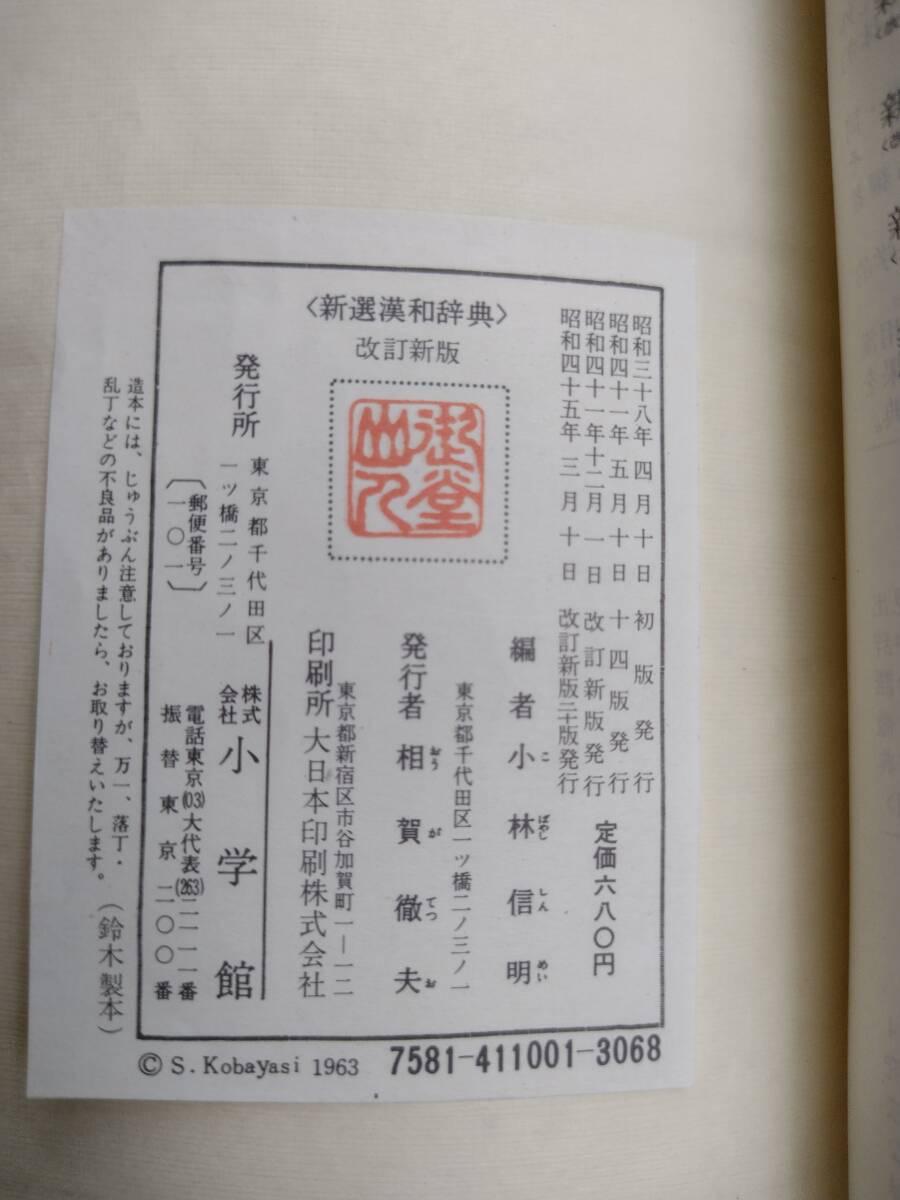 〈新選漢和辞典〉
改訂新版
昭和三十八年四月十日 初版発行
昭和四十一年五月十日 十四版発行
昭和四十一年十二月一日 改訂新版発行
昭和四十五年三月十日 改訂新版二十版発行
定価六八〇円
編者 小林信明
こばやししんめい
東京都千代田区一ツ橋二ノ三ノ一
発行者 相賀徹夫
おうがてつお
東京都新宿区市谷加賀町一―一二
印刷所 大日本印刷株式会社
発行所
東京都千代田区
一ツ橋二ノ三ノ一
〔郵便番号
一〇一〕
株式会社 小学館
電話東京(03)大代表(263)二一一一番
振替東京二〇〇番
造本には、じゅうぶん注意しておりますが、万一、落丁・
乱丁などの不良品がありましたら、お取り替えいたします。
(鈴木製本)
© S. Kobayasi 1963
7581-411001-3068